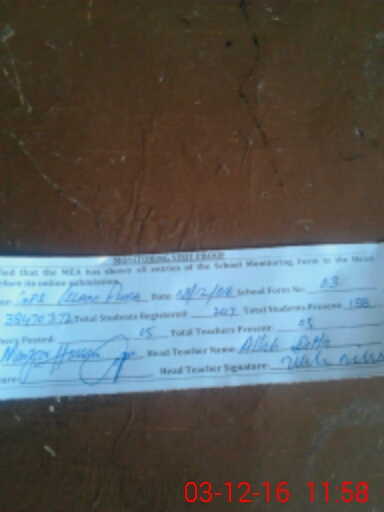 MONITORING VISIT PROOF
fied that the MEA has shown all entries of the School Monitoring Form to the Head
efore its online submission
me: GPS Date School Form No. 03
38470372 Total Students Registered: 207 Total Students Present: 188
hers Posted 05 Total Teachers Present: 05
Head Teacher Name: Allah Ditta
Head Teacher Signature:
03-12-16 11:58